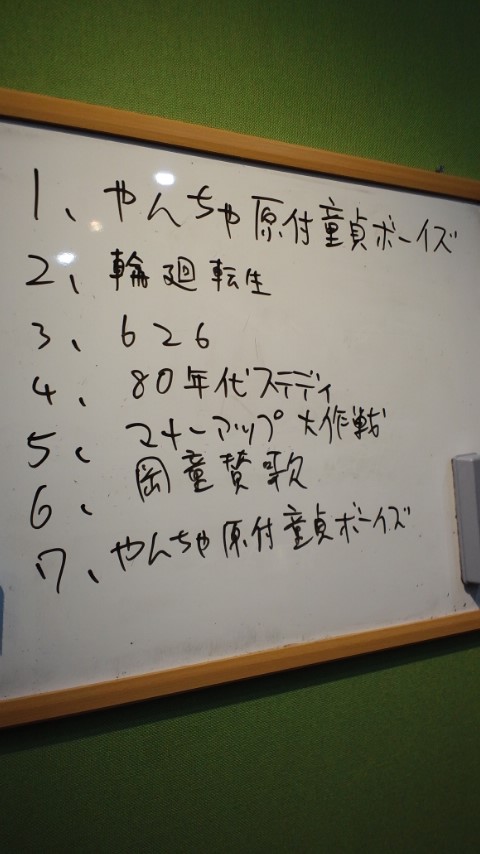 1、やんちゃ原付童貞ボーイズ
2、輪廻転生
3、626
4、80年代ステディ
5、マナーアップ大作戦
6、岡童賛歌
7、やんちゃ原付童貞ボーイズ